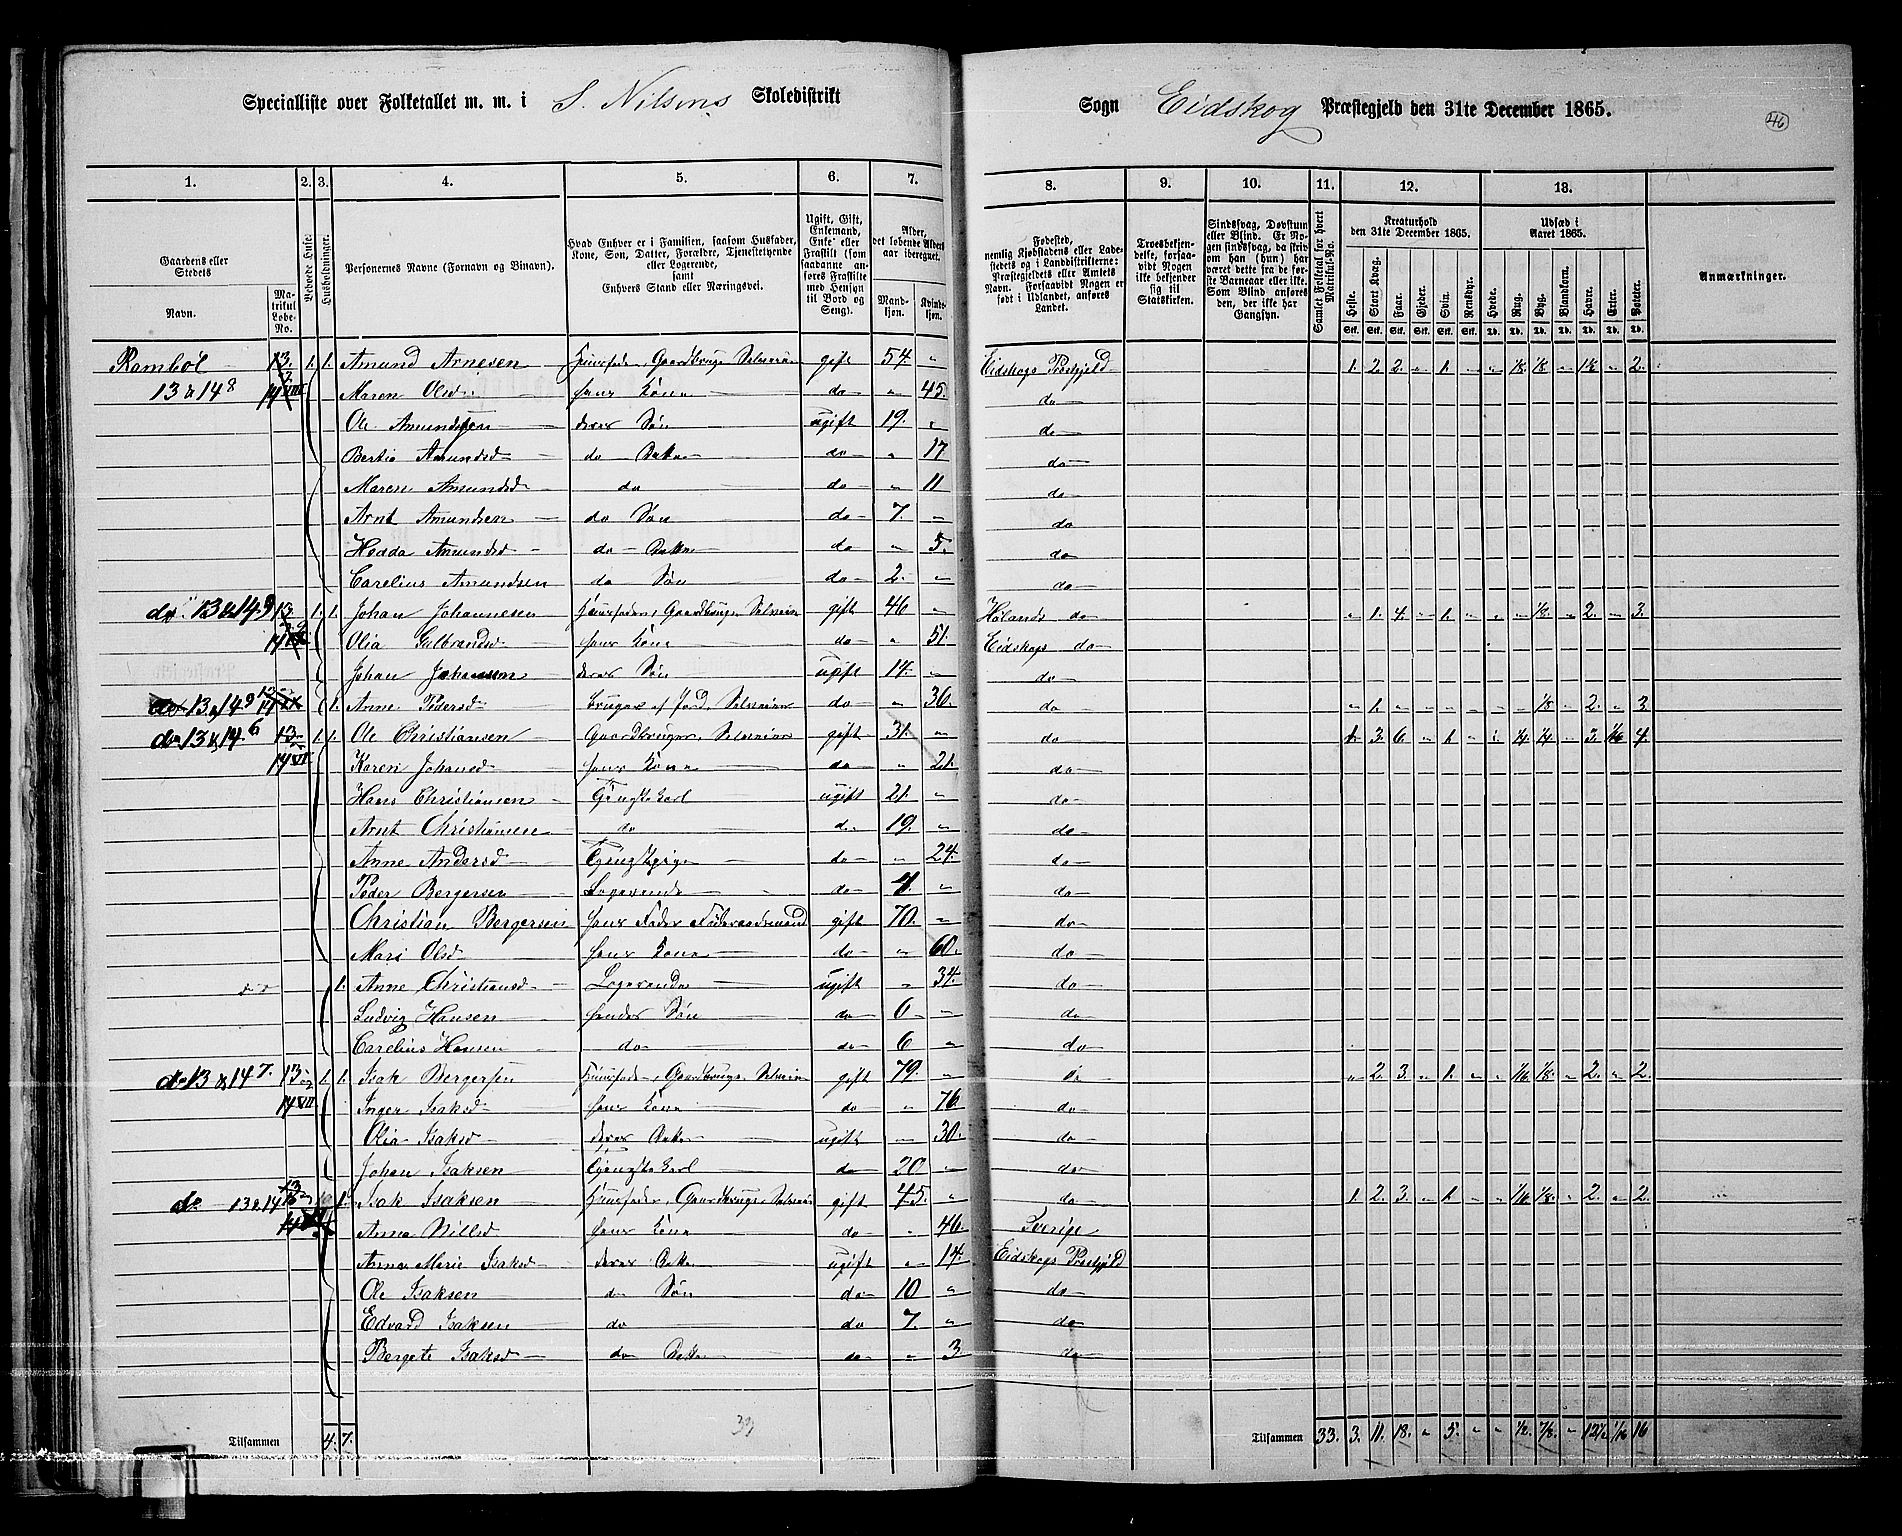 Specialliste over Folketallet m. m. i S. Nilsens Skoledistrikt
Sogn Eidskog Præstegjeld den 31te December 1865.
46
1. 2. 3. 4. 5. 6. 7. 8. 9. 10. 11. 12. 13.
Gaardens eller Stedets
Navn.
Matrikul Løbe-No.
Beboede Huse.
Husholdninger.
Personernes Navne (Fornavn og Binavn).
Hvad Enhver er i Familien, saasom Husfader, Kone, Søn, Datter, Forældre, Tjenestetyende eller Logerende,
samt
Enhvers Stand eller Næringsvei.
Ugift, Gift, Enkemand, Enke eller Fraskilt (som saadanne anføres Fraskilte med Hensyn til Bord og Seng).
Alder, det løbende Alders aar iberegnet.
Mandkjøn. Kvindekjøn.
Fødested, nemlig Kjøbstadens eller Ladestedets og i Landdistrikterne: Præstegjeldets eller Amtets Navn. Forsaavidt Nogen er født i Udlandet, anføres Landet.
Troesbekjendelse, forsaavidt Nogen ikke bekjender sig til Statskirken.
Sindssvag, Døvstum eller Blind. Er Nogen sindssvag, da skrives om han (hun) har været dette fra de første Barneaar eller ikke. Som Blind anføres den, der ikke har Gangsyn.
Samlet Folketal for hvert Matrikul-No.
Kreaturhold den 31te December 1865.
Heste. Stort Kvæg. Faar. Gjeder. Svin. Rensdyr.
Udsæd i Aaret 1865.
Hvede. Rug. Byg. Blandkorn. Havre. Erter. Poteter.
Anmærkninger.
Rambøl 13. 1. 1. Amund Arnesen Huusfader, Gaardbruger Selveier gift 54. „ Eidskogs Prestgjeld 1. 2. 2. „ 1. „ „ 1/8. 1/8. „ 1½ „ 2.
13 & 14 8 Maren Olsd. hans Kone do „ 45. do
Ole Amundsen deres Søn ugift 19. „ do
Bertia Amundsd do Datter do „ 17 do
Maren Amundsd do do „ 11 do
Arnt Amundsen do Søn do 7. „ do
Hedda Amundsd do Datter do „ 5. do
Carelius Amundsen do Søn do 2. „ do
do 13 & 14 9 13. 1. 1. Johan Johannesen Huusfader, Gaardbruger Selveier gift 46 „ Hølands do „ 1. 4. „ 1. „ „ „ 1/8. „ 2. „ 3.
Olia Gulbrandsd hans Kone do „ 51. Eidskogs do
Johan Johansen deres Søn ugift 14. „ do
do 13 & 14 9 1. Anne Pedersd. Bruger af Jord, Selveier do „ 36. do „ 1. „ „ „ „ „ „ 1/8 „ 2. „ 3
do 13 & 14. 6 13 1. 1. Ole Christiansen Gaardbruger, Selveier gift 31. „ do 1. 3. 6. „ 1. „ „ 1/4. 1/4. „ 3. 1/16 4.
14 VI Karen Johansd hans Kone do „ 21. do
Hans Christiansen Tjenestekarl ugift 21. „ do
Arnt Christiansen do do 19. „ do
Anne Andersd Tjenestepige do „ 24. do
Peder Bergersen Logerende do 4. „ do
Christian Bergersen hans Fader Føderaadsmand gift 70. „ do
Mari Olsd hans Kone do „ 60. do
1. Anne Christiansd Logerende ugift „ 34. do
Ludvig Hansen hendes Søn do 6 „ do
Carelius Hansen do do 6 „ do
do 13 & 14 7. 13 og 1. 1. Isak Bergersen Huusfader, Gaardbruger, Selveier gift 79. „ do „ 2. 3. „ 1. „ „ 1/16 1/8. „ 2. „ 2.
14 VII Inger Isaksd hans Kone do „ 76. do
Olia Isaksd deres Datter ugift „ 30. do
Johan Isaksen Tjenestekarl do 20 „ do
do 13 & 14 1. Isak Isaksen Huusfader, Gaardbruger Selveier gift 45. „ do 1. 2. 3. „ 1. „ „ 1/16 1/8. „ 2. „ 2.
Anna Nillsd hans Kone do „ 46. Sverige
Anna Marie Isaksd deres Datter ugift „ 14. Eidskogs Prestgjeld
Ole Isaksen do Søn do 10 „ do
Edvard Isaksen do do 7. „ do
Bergete Isaksd do Datter do „ 3 do
33
Tilsammen 4. 7. Tilsammen 33. 3. 11. 18. „ 5. „ „ ½. 7/8. „ 12½ 1/16 16